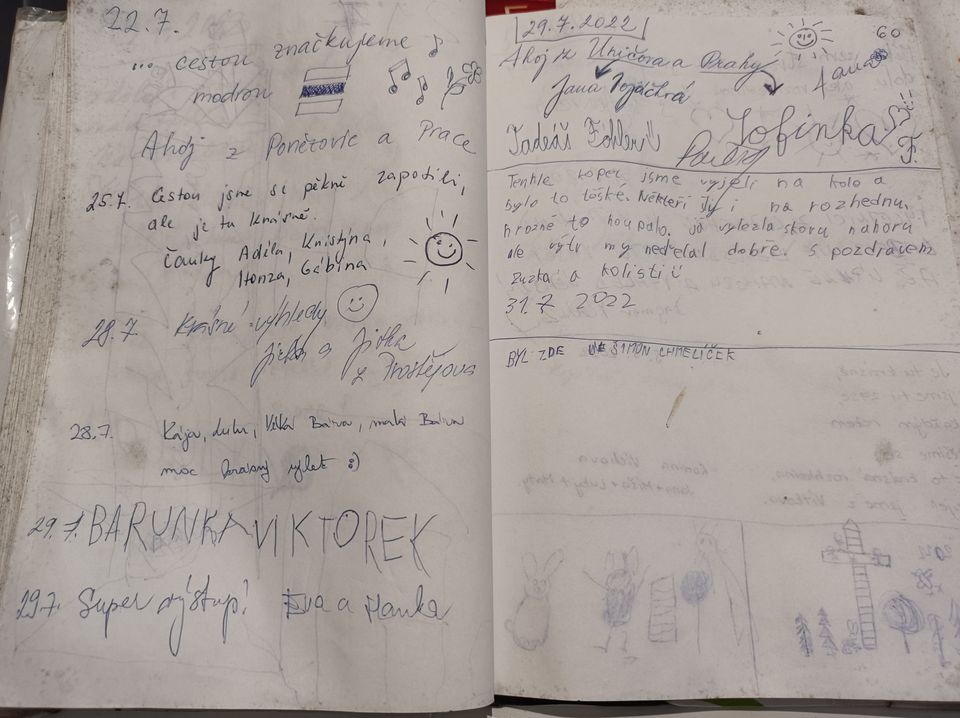 22.7.
... cestou značkujeme
modrou
Ahoj z Ponětovic a Prace
25.7. Cestou jsme se pěkně zapotili,
ale je tu krásně.
Čauky Adéla, Kristýna,
Honza, Gábina
28.7. Krásné výhledy
Jirka a Jitka
z Prostějova
28.7. Kája, Bára, malá Bára
moc krásný výlet :)
29.7. BARUNKA VIKTOREK
29.7. Super výstup! Eva a Hanka
29.7.2022
60
Ahoj z Uničova a Prahy
Jana
Jana
Tadeáš
Žofinka
Tenhle kopec jsme vyjeli na kolo a
bylo to těšké. Někteří i na rozhednu.
hrozně to houpalo. já vylezla skoru nahoru
ale výtr my nedělal dobře. s pozdravem
Zuzka a kolisti
31.7 2022
BYL ZDE ŠIMON CHMELÍČEK